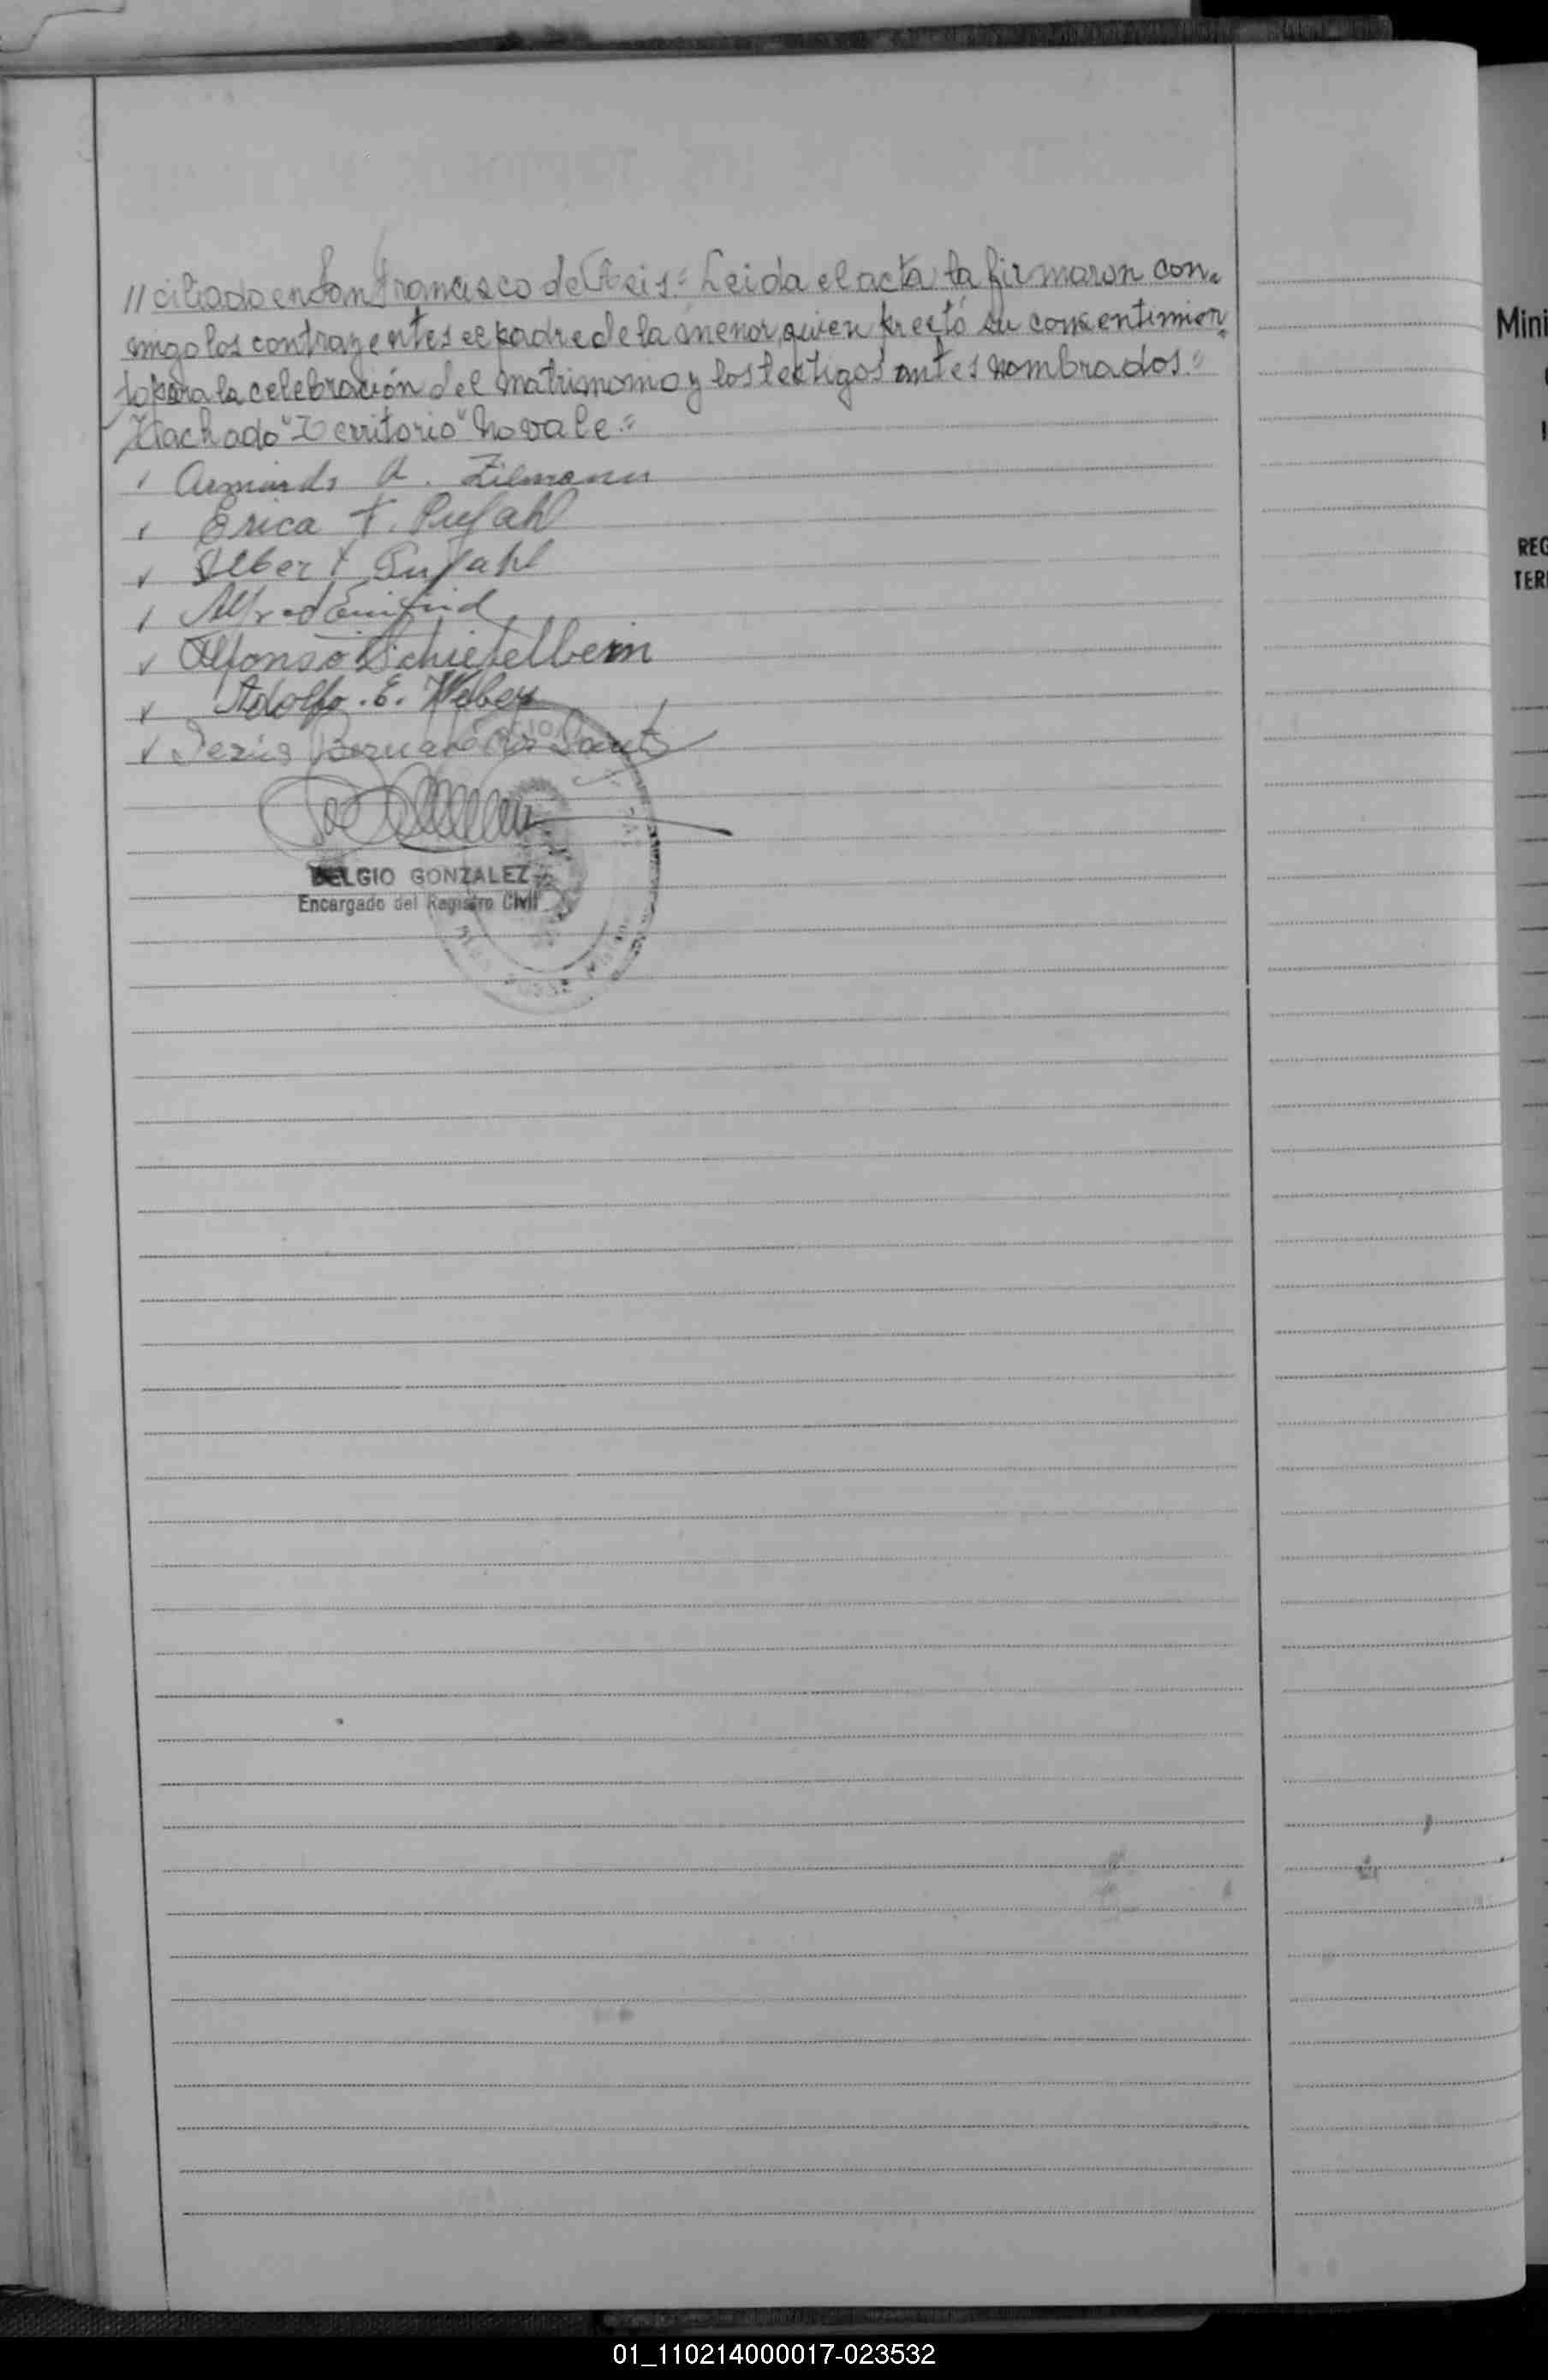 //ciliado en San Francisco de Asis.= Leida el acta la firmaron con=
migo los contrayentes el padre de la menor, quien prestó su consentimien=
to para la celebración del matrimonio y los testigos antes nombrados.=
Tachado "Territorio" no vale.=
Armindo A. Zilmann
Erica F. Pufahl
Albert Pufahl
Alfred
Alfonso Schiefelbein
Adolfo. E. Weber
Jesús Bernabé Dos Santos
BELGIO GONZALEZ
Encargado del Registro Civil
Mini
REG
TER
01_110214000017-023532